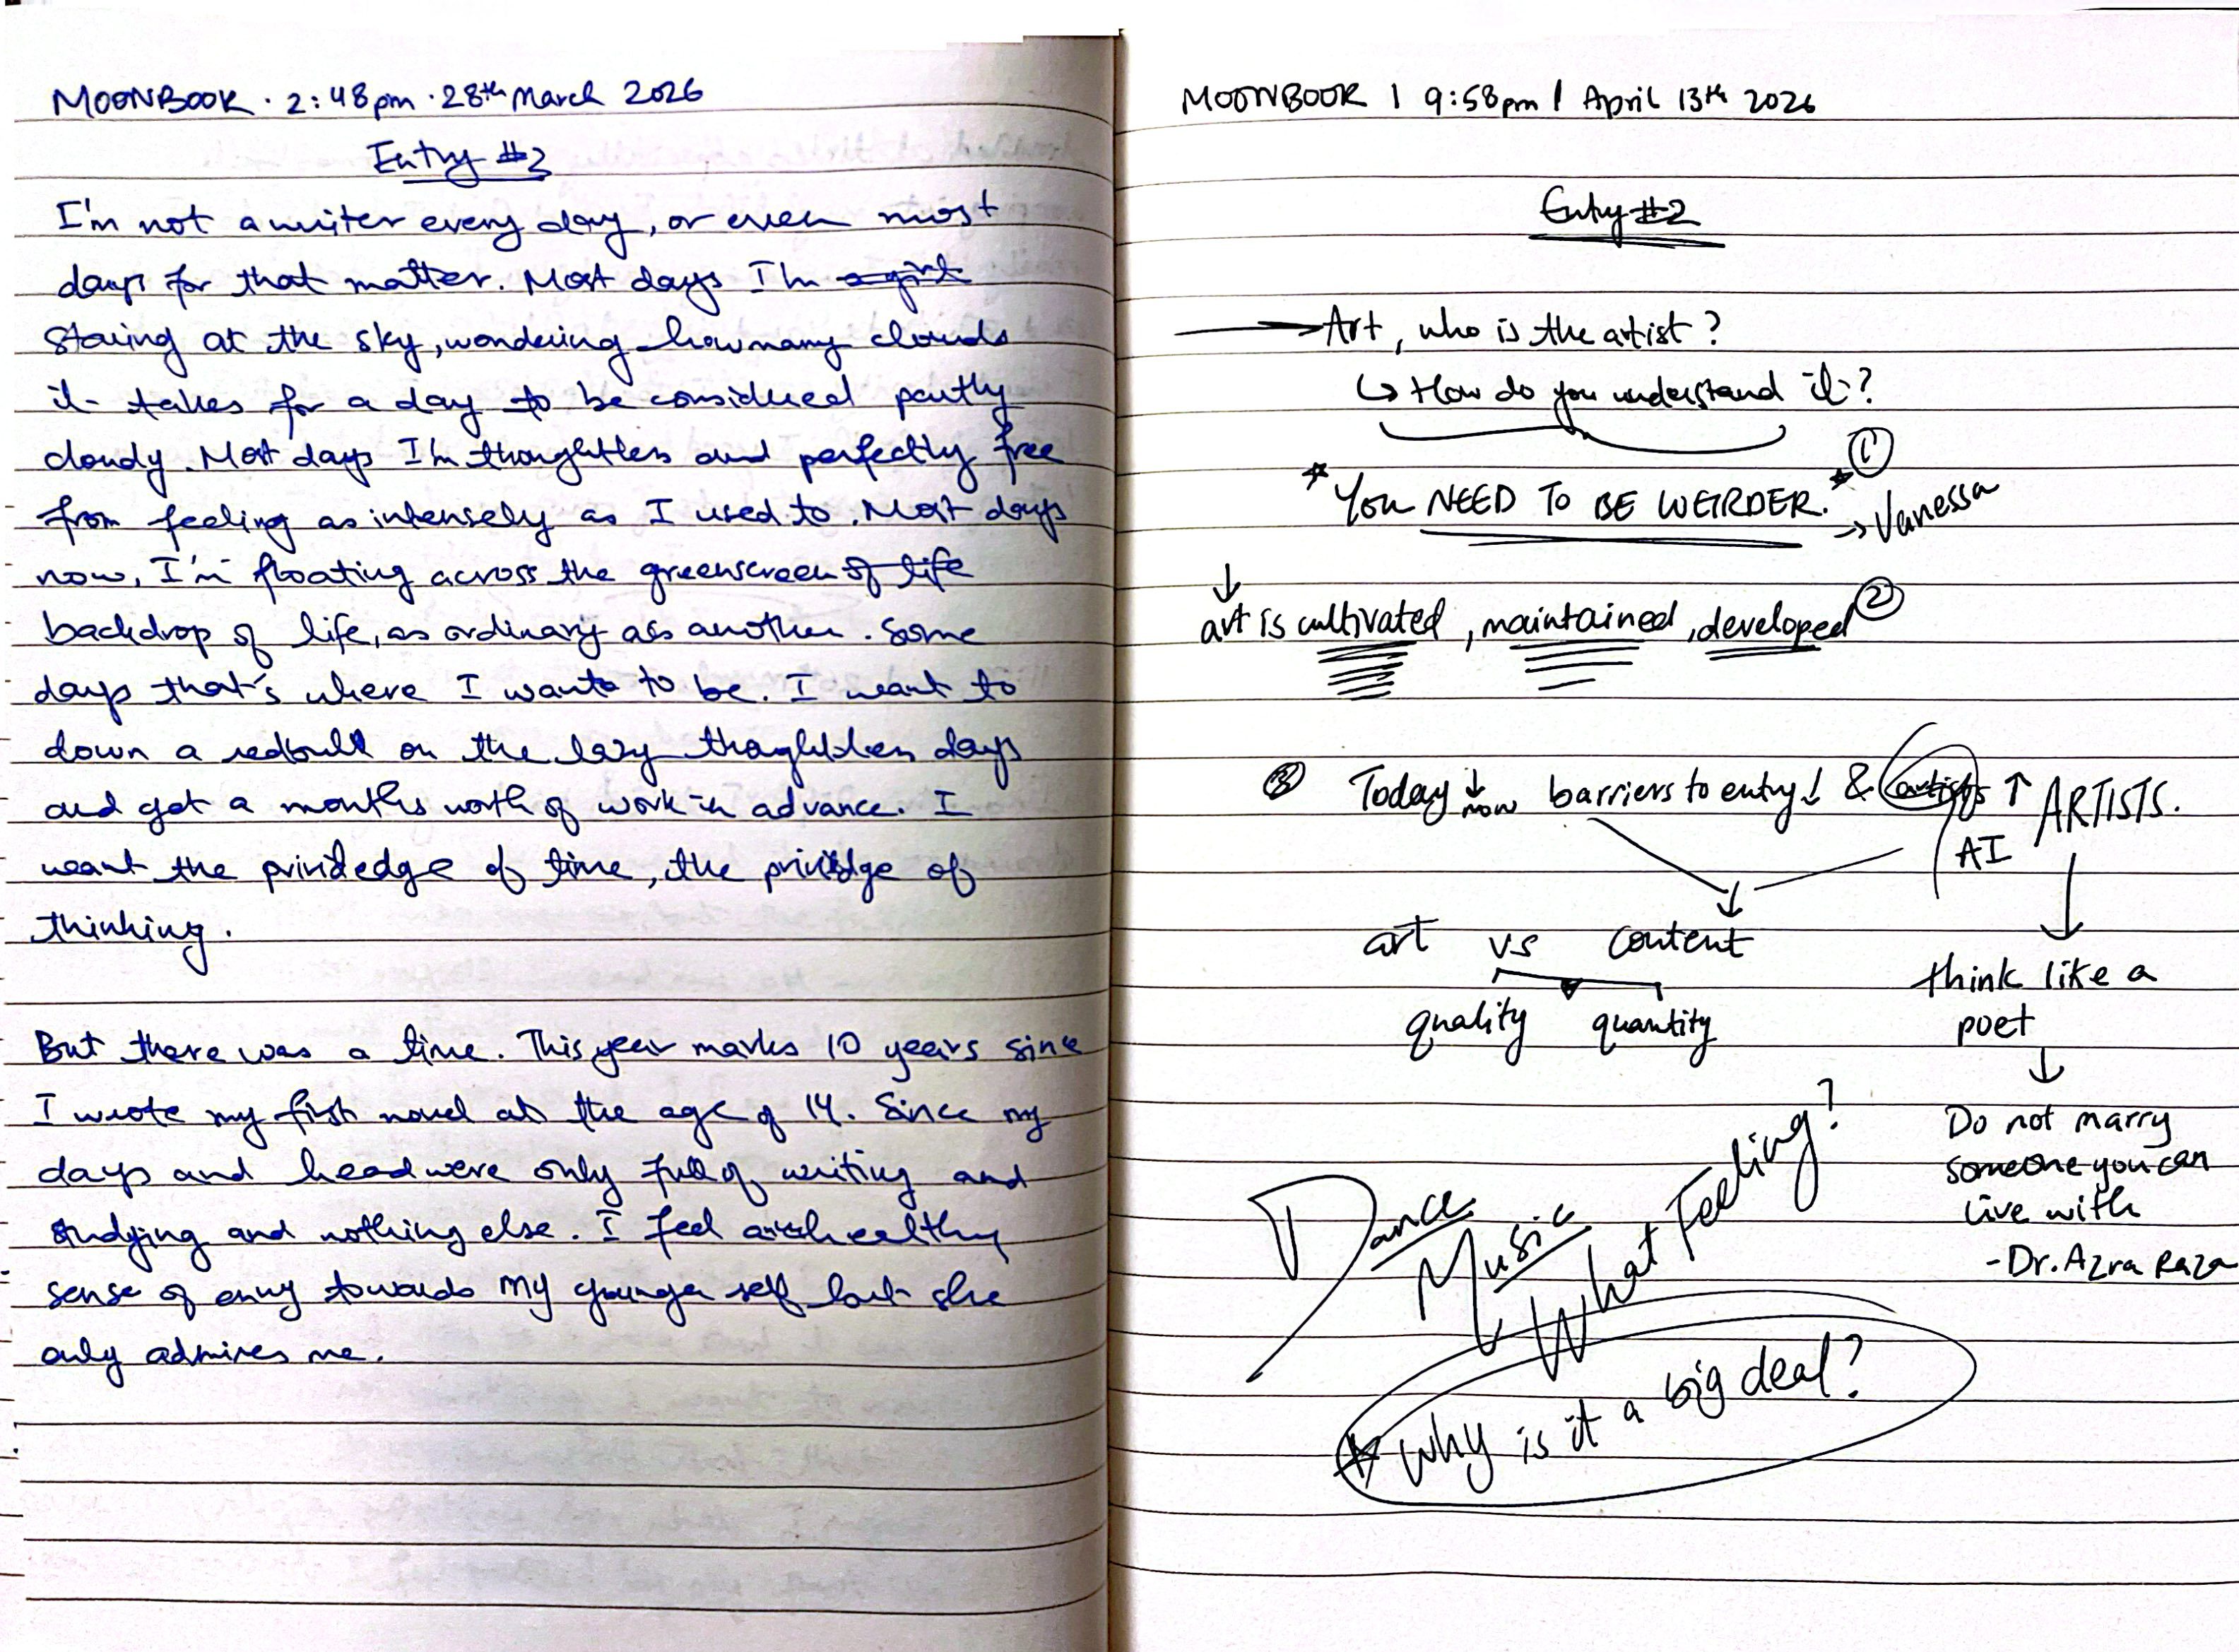 MOONBOOK · 2:48pm · 28th March 2026
Entry #3
I'm not a writer every day, or even most
days for that matter. Most days I'm a girl
staring at the sky, wondering how many clouds
it takes for a day to be considered partly
cloudy. Most days I'm thoughtless and perfectly free
from feeling as intensely as I used to. Most days
now, I'm floating across the greenscreen of life
backdrop of life, as ordinary as another. Some
days that's where I want to be. I want to
down a redbull on the lazy thoughtless days
and get a months worth of work in advance. I
want the priviledge of time, the privildge of
thinking.
But there was a time. This year marks 10 years since
I wrote my first novel at the age of 14. Since my
days and head were only full of writing and
studying and nothing else. I feel a healthy
sense of envy towards my younger self but she
only admires me.
MOONBOOK | 9:58pm | April 13th 2026
Entry #2
Art, who is the artist?
↳ How do you understand it?
*YOU NEED TO BE WEIRDER.* ①
→ Vanessa
↓
art is cultivated, maintained, developed ②
③ Today ↓ now barriers to entry ↓ & artists ↑ ARTISTS.
AI
art vs content
quality quantity
think like a
poet
↓
Do not marry
someone you can
live with
- Dr. Azra Raza
Dance
Music
What Feeling?
* Why is it a big deal?